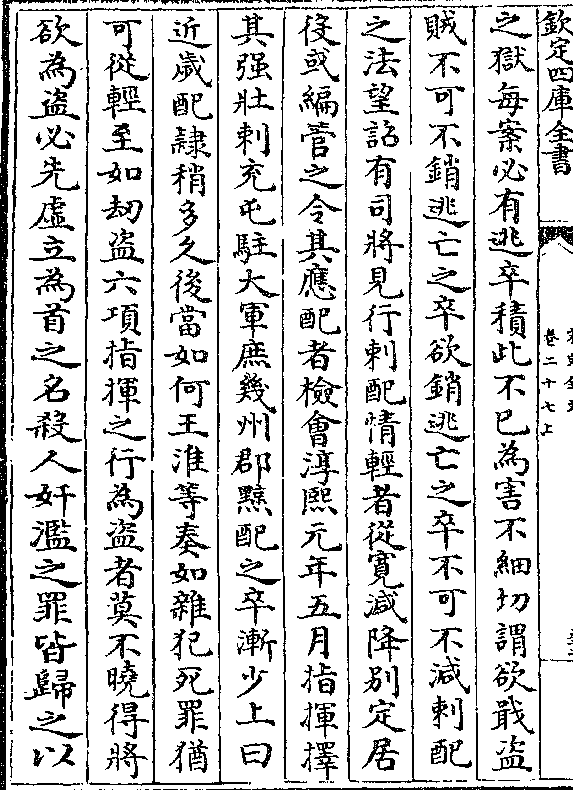 欽定四庫全書
卷二十七上
之獄每案必有逃卒積此不已為害不細切謂欲戢盜
賊不可不銷逃亡之卒欲銷逃亡之卒不可不減刺配
之法望詔有司將見行刺配情輕者從寛減降別定居
役或編管之令其應配者檢會淳熙元年五月指揮擇
其强壯刺充屯駐大軍庶幾州郡黥配之卒漸少上曰
近歲配𨽻稍多久後當如何王淮等奏如雜犯死罪猶
可從輕至如劫盜六項指揮之行為盜者莫不曉得將
欲為盜必先虛立為首之名殺人奸濫之罪皆歸之以